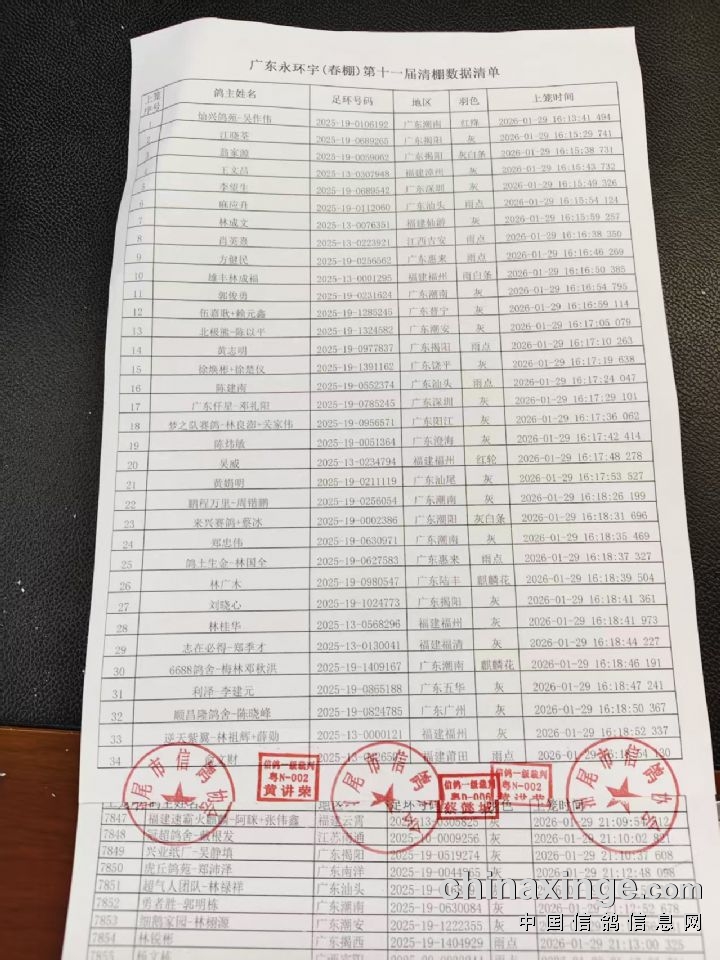 广东永环宇(春棚)第十一届清棚数据清单
上笼序号 鸽主姓名 足环号码 地区 羽色 上笼时间
1 灿兴鸽苑-吴作伟 2025-19-0106192 广东潮南 红绛 2026-01-29 16:13:41 494
2 江晓莶 2025-19-0689265 广东揭阳 灰 2026-01-29 16:15:29 741
3 翁家源 2025-19-0059062 广东揭阳 灰白条 2026-01-29 16:15:38 731
4 王文昌 2025-13-0307948 福建漳州 灰 2026-01-29 16:15:43 732
5 李望生 2025-19-0689542 广东深圳 灰 2026-01-29 16:15:49 326
6 麻应升 2025-19-0112060 广东汕头 雨点 2026-01-29 16:15:54 124
7 林成文 2025-13-0076351 福建仙游 灰 2026-01-29 16:15:59 257
8 肖英熹 2025-13-0223921 江西吉安 雨点 2026-01-29 16:16:38 350
9 方健民 2025-19-0256562 广东惠来 雨点 2026-01-29 16:16:46 269
10 雄丰林成福 2025-13-0001295 福建福州 雨白条 2026-01-29 16:16:50 385
11 郭俊勇 2025-19-0231624 广东潮南 灰 2026-01-29 16:16:54 795
12 伍嘉耿+赖元鑫 2025-19-1285245 广东普宁 灰 2026-01-29 16:16:59 114
13 北极熊-陈以平 2025-19-1324582 广东潮安 灰 2026-01-29 16:17:05 079
14 黄志明 2025-19-0977837 广东揭阳 雨点 2026-01-29 16:17:10 263
15 徐焕彬+徐楚仪 2025-19-1391162 广东饶平 灰 2026-01-29 16:17:19 638
16 陈建南 2025-19-0552374 广东汕头 雨点 2026-01-29 16:17:24 047
17 广东仟星-邓礼阳 2025-19-0785245 广东深圳 灰 2026-01-29 16:17:29 101
18 梦之队赛鸽-林良澎+关家伟 2025-19-0956571 广东阳江 灰 2026-01-29 16:17:36 062
19 陈炜敏 2025-19-0051364 广东澄海 灰 2026-01-29 16:17:42 414
20 吴威 2025-13-0234794 福建福州 红轮 2026-01-29 16:17:48 278
21 黄娟明 2025-19-0211119 广东汕尾 灰 2026-01-29 16:17:53 527
22 鹏程万里-周锴鹏 2025-19-0256054 广东潮南 灰 2026-01-29 16:18:26 199
23 来兴赛鸽+蔡冰 2025-19-0002386 广东潮阳 灰白条 2026-01-29 16:18:31 696
24 郑忠伟 2025-19-0630971 广东潮南 灰 2026-01-29 16:18:35 469
25 鸽士生命-林国全 2025-19-0627583 广东惠来 雨点 2026-01-29 16:18:37 327
26 林广木 2025-19-0980547 广东陆丰 麒麟花 2026-01-29 16:18:39 504
27 刘晓心 2025-19-1024773 广东揭阳 灰 2026-01-29 16:18:41 361
28 林桂华 2025-13-0568296 福建福州 灰 2026-01-29 16:18:41 973
29 志在必得-郑季才 2025-13-0130041 福建福清 灰 2026-01-29 16:18:44 227
30 6688鸽舍-梅林邓秋洪 2025-19-1409167 广东潮南 麒麟花 2026-01-29 16:18:46 191
31 利泽-李建元 2025-19-0865188 广东五华 灰 2026-01-29 16:18:47 241
32 顺昌隆鸽舍-陈晓峰 2025-19-0824785 广东广州 灰 2026-01-29 16:18:50 367
33 逆天紫翼-林祖辉+薛勋 2025-13-0000121 福建福州 灰 2026-01-29 16:18:52 337
34 文财 福建莆田 雨点 2026-01-29 16:18:54 130
尾市信鸽协会
信鸽一级裁判
粤N-002
黄讲荣
尾市信鸽协会
信鸽一级裁判
粤D-006
信鸽一级裁判
粤N-002
黄讲荣
尾市信鸽协
鸽主姓名 足环号码 色 上笼时间
7847 福建速霸火麒麟-阿咪+张伟鑫 福建云霄 0305825 灰 2026-01-29 21:09:51 212
7848 冠超鸽舍-戴根发 江苏南通 0009256 灰 2026-01-29 21:10:02 821
7849 兴业纸厂-吴静填 广东揭阳 2025-19-0519274 灰 2026-01-29 21:10:37 608
7850 虎丘鸽苑-郑沛泽 广东南洋 灰 2026-01-29 21:12:48 098
7851 超气人团队-林绿祥 广东汕头
7852 勇者胜-郭明栋 广东潮南 2025-19-0630084 灰 2026-01-29 21:12:52 678
7853 细鹅家园-林栩源 广东潮安 2025-19-1222355
7854 林锐彬 广东揭西 2025-19-1404929 雨点 2026-01-29 21:13:00 325
7855 杨文栋
chinaxinge.com
中国信鸽信息网